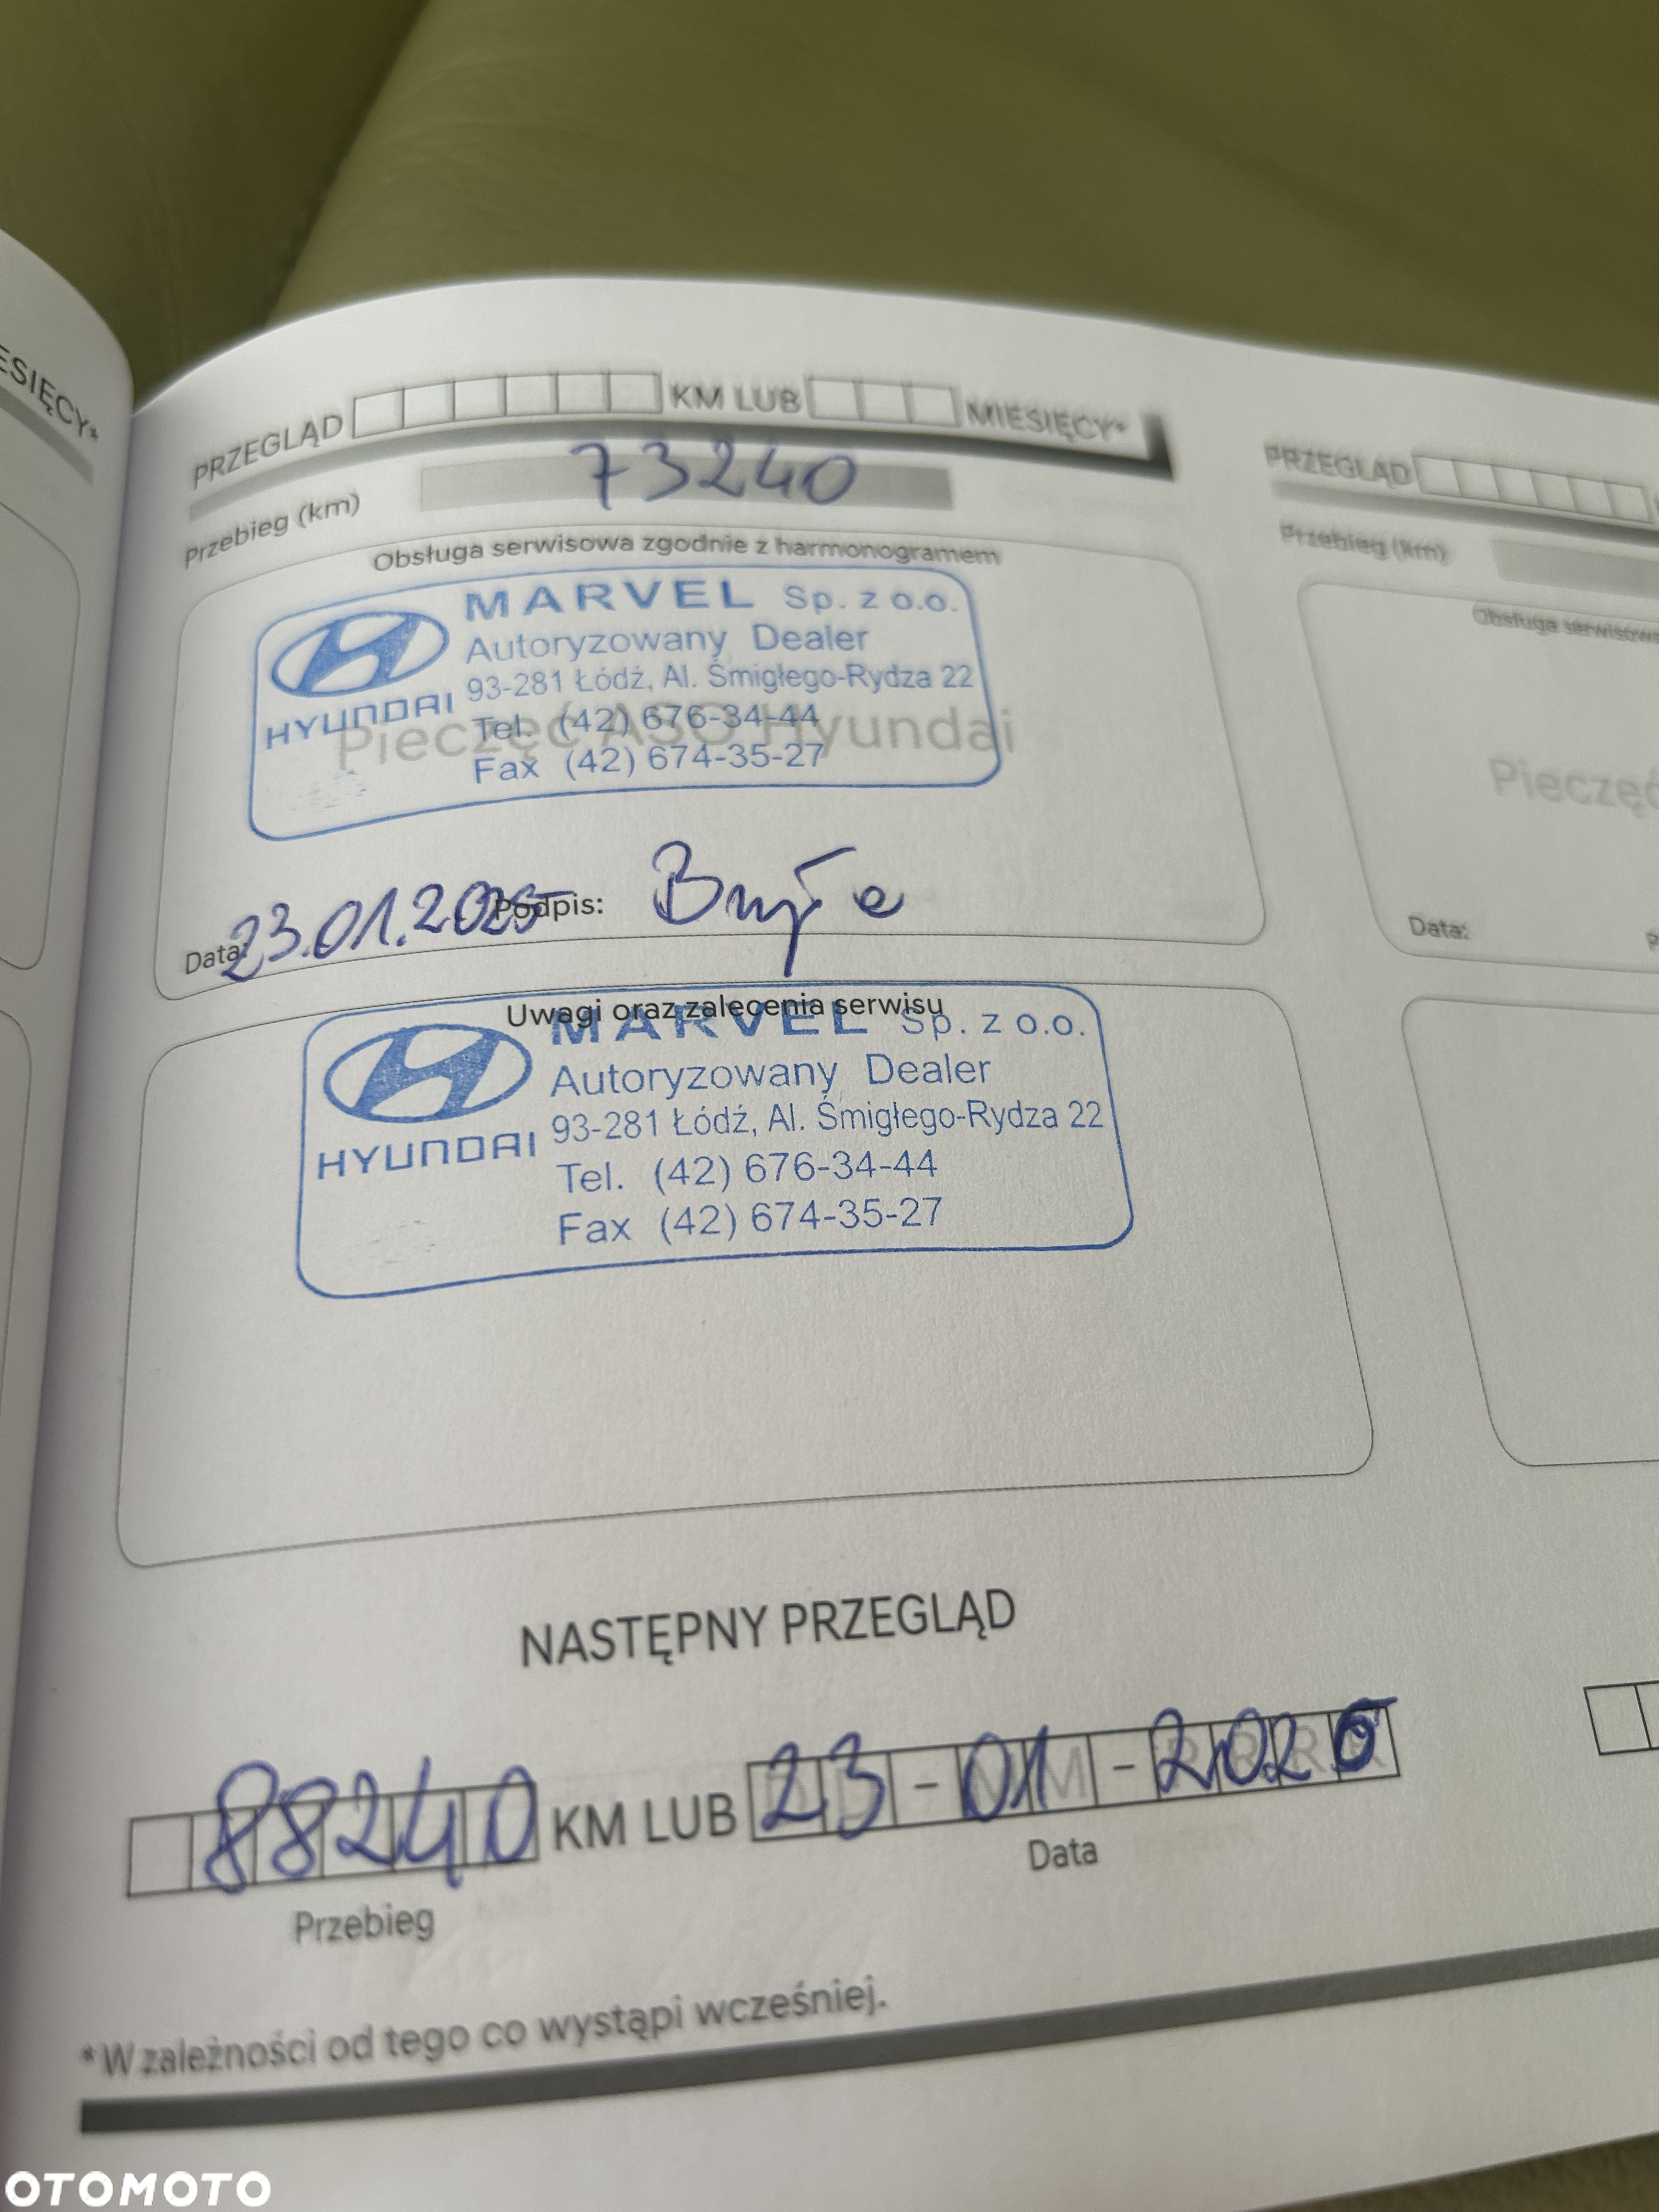 ESIĘCY*
PRZEGLĄD KM LUB MIESIĘCY*
Przebieg (km) 73240
Obsługa serwisowa zgodnie z harmonogramem
MARVEL Sp. z o.o.
Autoryzowany Dealer
93-281 Łódź, Al. Śmigłego-Rydza 22
HYUNDAI
Tel. (42) 676-34-44
Fax (42) 674-35-27
Pieczęć ASO Hyundai
Data: 23.01.2025 Podpis:
Uwagi oraz zalecenia serwisu
MARVEL Sp. z o.o.
Autoryzowany Dealer
93-281 Łódź, Al. Śmigłego-Rydza 22
HYUNDAI
Tel. (42) 676-34-44
Fax (42) 674-35-27
NASTĘPNY PRZEGLĄD
88240 KM LUB 23-01-2026
Przebieg
Data
*W zależności od tego co wystąpi wcześniej.
PRZEGLĄD
Przebieg (km)
Obsługa serwisowa
Pieczęć
Data:
OTOMOTO